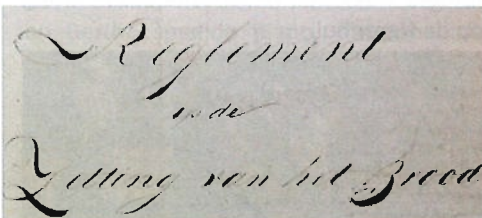 Reglement
op de
Zetting van het Brood